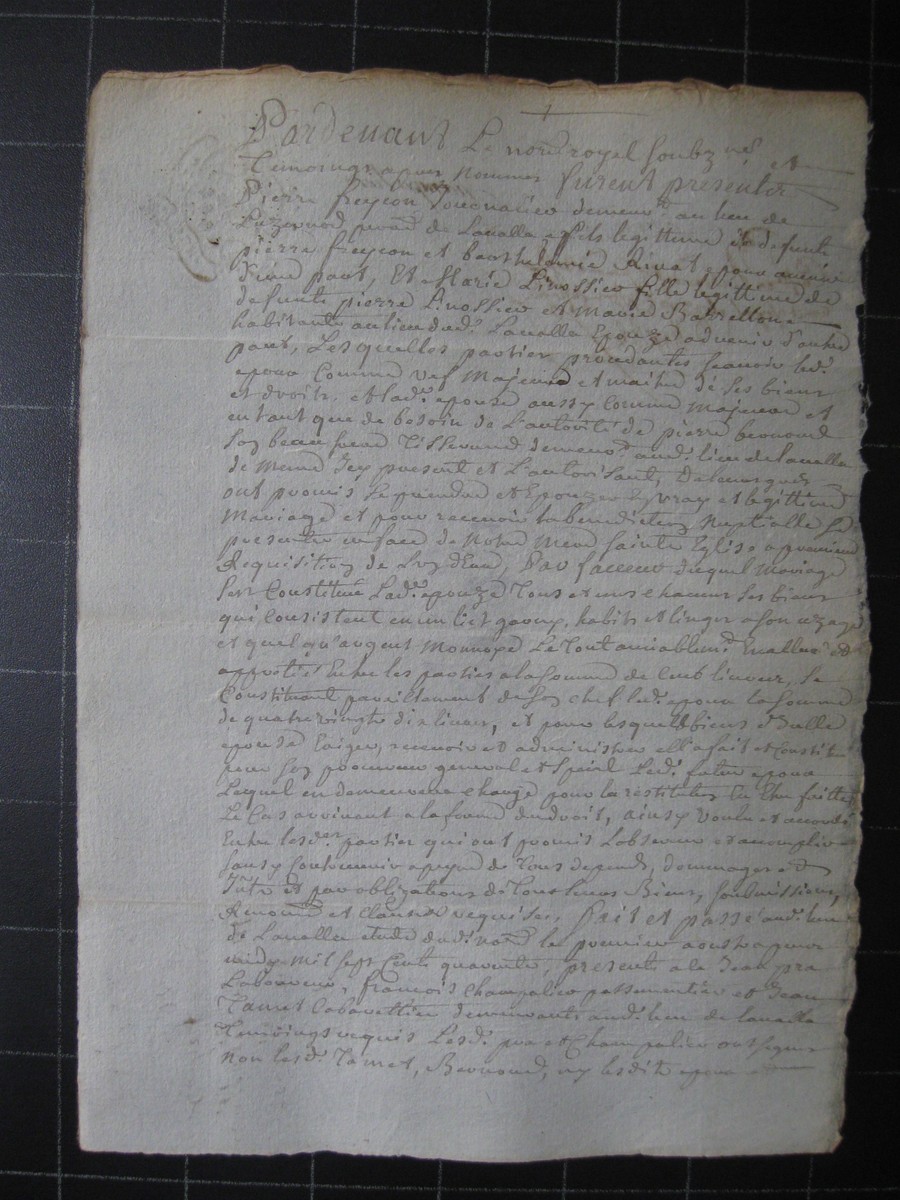 Pardevant Le nore royal soubz né et
Temoings apres nommes furent presentes
Pierre freycon demeurt au lieu de
Luzernod parr de Lavalla fils legittime de defunt
pierre freycon et Barthelemie Rivat epoux avenir
d'une part, Et Marie Linossier fille legittime de
defunts pierre Linossier et Marie Barrellon
habitante au lieu dud. Lavalla Epouze advenir d'autre
part, Lesquelles parties procedantes scavoir led.
epoux Comme Majeur et maitre de ses biens
et droits. et lad. epouse aussy Comme Majeure et
en tant que de besoin de L'autorité de pierre
Son beau frere Tisserand demeurt aud. lieu de lavalla
de meme Icy present et L'autorisant, De leur gréz
ont promis Se prendre et Epouzer En vray et legittime
Mariage et pour recevoir la benediction Nuptialle Se
presenter en face de Notre Mere Sainte Eglise a premiere
Requisition de L'un d'Eux, En faveur duquel Mariage
Sest Constitué Lad. epouze Tous et uns chacuns Ses biens
qui Consistent en un lict garny, habits et linges a Son uzage
et quelqu'argent Monnoyé Le Tout amiablemt Evallué et
apprétié Entre les parties a la Somme de Cent livres, Se
Constituant pareillement de Son Chef led. epoux la Somme
de quatrevingts dix livres, et pour lesquels biens d'Icelle
epouse Exiger, recevoir et administrer ell'a fait et Constitué
pour Son procureur general et Spécial Led. futur epoux
Lequel en demeurera chargé pour la restitution En Etre faitte
Le Cas avenant a la forme du droit, ainsy Voulu et accordé
Entre lesd. parties qui ont promis L'observer et accomplir
Sans y Contrevenir a peyne de Tous depends, dommages et
Intr et par obligations de Tous leurs Biens, Soubmissions,
Renonc. et Clauses requises, fait et passé aud. lieu
de Lavalla etude dud. nore le premier aoust apres
midy Mil sept Cents quarante, presents a ce Jean pra
Laboureur, françois Champalier passementier et Jean
Tamet Cabarettier demeurants aud. lieu de lavalla
Temoings requis Lesd. pra et Champalier ont signé
non lesd. Tamet, ny lesdits epoux